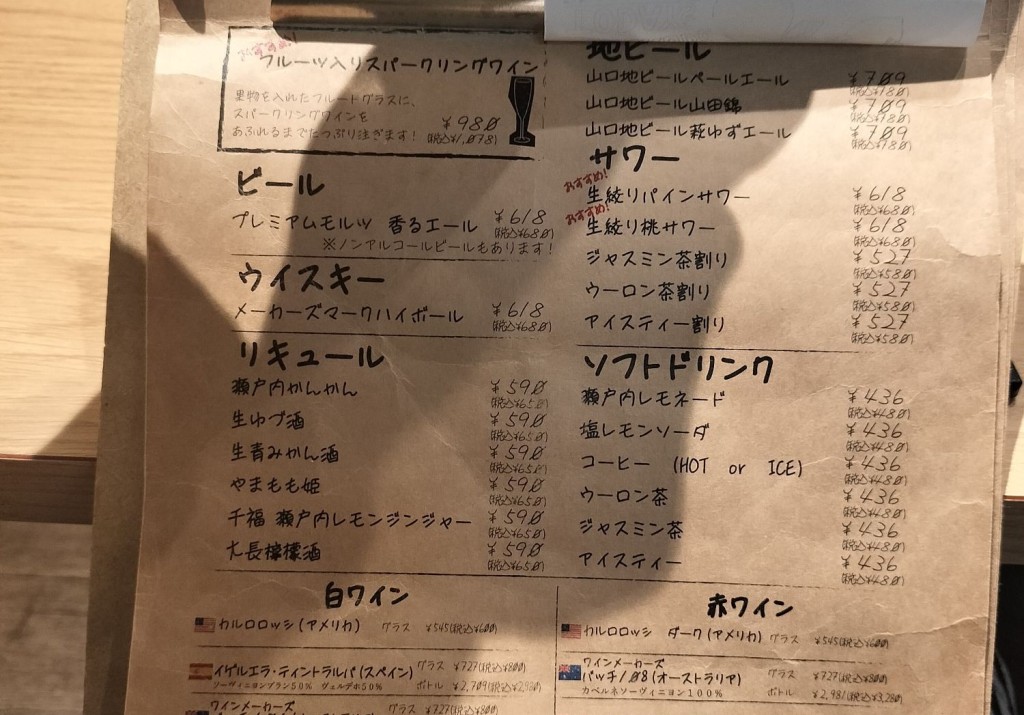 おすすめ!
フルーツ入りスパークリングワイン
果物を入れたフルートグラスに、
スパークリングワインを
あふれるまでたっぷり注ぎます!
¥980
(税込¥1,078)
ビール
プレミアムモルツ 香るエール ¥618
(税込¥680)
※ノンアルコールビールもあります!
ウイスキー
メーカーズマークハイボール ¥618
(税込¥680)
リキュール
瀬戸内かんかん ¥590
(税込¥650)
生ゆづ酒 ¥590
(税込¥650)
生青みかん酒 ¥590
(税込¥650)
やまもも姫 ¥590
(税込¥650)
千福 瀬戸内レモンジンジャー ¥590
(税込¥650)
大長檸檬酒 ¥590
(税込¥650)
地ビール
山口地ビールペールエール ¥709
(税込¥780)
山口地ビール山田錦 ¥709
(税込¥780)
山口地ビール萩ゆずエール ¥709
(税込¥780)
サワー
おすすめ!
生絞りパインサワー ¥618
(税込¥680)
おすすめ!
生絞り桃サワー ¥618
(税込¥680)
ジャスミン茶割り ¥527
(税込¥580)
ウーロン茶割り ¥527
(税込¥580)
アイスティー割り ¥527
(税込¥580)
ソフトドリンク
瀬戸内レモネード ¥436
(税込¥480)
塩レモンソーダ ¥436
(税込¥480)
コーヒー (HOT or ICE) ¥436
(税込¥480)
ウーロン茶 ¥436
(税込¥480)
ジャスミン茶 ¥436
(税込¥480)
アイスティー ¥436
(税込¥480)
白ワイン
カルロロッシ(アメリカ) グラス ¥545(税込¥600)
イゲルエラ・ティントラルパ(スペイン) グラス ¥727(税込¥800)
ソーヴィニヨンブラン50% ヴェルデホ50% ボトル ¥2,709(税込¥2,980)
ワインメーカーズ グラス ¥727(税込¥800)
赤ワイン
カルロロッシ ダーク(アメリカ) グラス ¥545(税込¥600)
ワインメーカーズ グラス ¥727(税込¥800)
バッチ108(オーストラリア)
カベルネソーヴィニヨン100% ボトル ¥2,981(税込¥3,280)